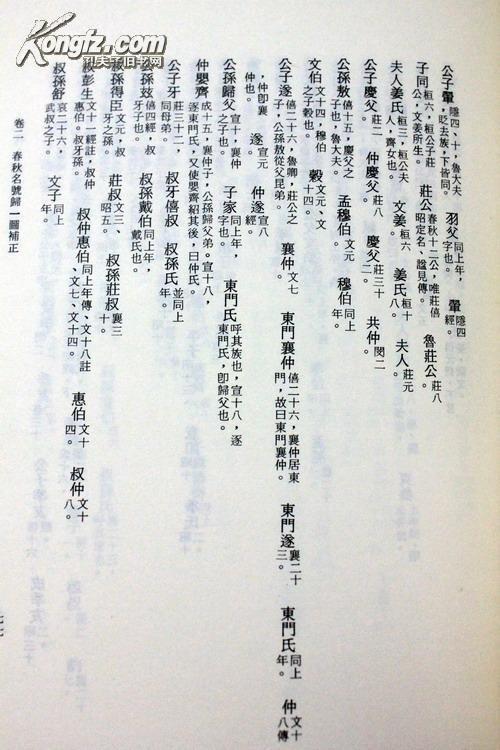 Kongfz.com
孔夫子旧书网
公子翬 隱四、十，魯大夫，貶去族，下皆同。 羽父 同上年，字也。 翬 隱四經。
子同 桓六，桓公子莊公，文姜所生。 莊公 春秋十二公，唯莊僖昭定名，諡見傳。 魯莊公 莊八
夫人姜氏 桓三，桓公夫人，齊女也。 文姜 桓六 姜氏 桓十八。 夫人 莊元
公子慶父 莊二。 仲慶父 莊八 慶父 莊三十二。 共仲 閔二
公孫敖 僖十五，慶父之子也，魯大夫。 孟穆伯 文元 穆伯 同上年。
文伯 文十四，穆伯之子穀也。 穀 文元、文十四。
公子遂 僖二十六，魯卿，莊公之子，公孫敖從父昆弟。 襄仲 文七 東門襄仲 僖二十六，襄仲居東門，故曰東門襄仲。 東門遂 襄二十三。 東門氏 同上年。 仲 文十八傳
，仲卽襄仲也。 遂 宣元 仲遂 宣八經。
公孫歸父 宣十，襄仲之子也。 子家 同上年，字也。 東門氏 呼其族也，宣十八，逐東門氏，卽歸父也。
仲嬰齊 成十五，襄仲子，公孫歸父弟。宣十八，逐東門氏，又使嬰齊紹其後，曰仲氏。
公子牙 莊三十二，同母弟。 叔牙 僖叔 叔孫氏 並同上年。
公孫玆 僖四經，叔牙子也。 叔孫戴伯 同上年，戴氏也。
叔孫得臣 文元，叔牙之孫。 莊叔 文三、昭五。 叔孫莊叔 襄三十。
叔彭生 文十一經註，叔仲惠伯，叔牙孫。 叔仲惠伯 同上年傳、文十八註、文七、文十四。 惠伯 文十四。 叔仲 文十八。
叔孫舒 哀二十六，武叔之子。 文子 同上年。
卷二 春秋名號歸一圖補正